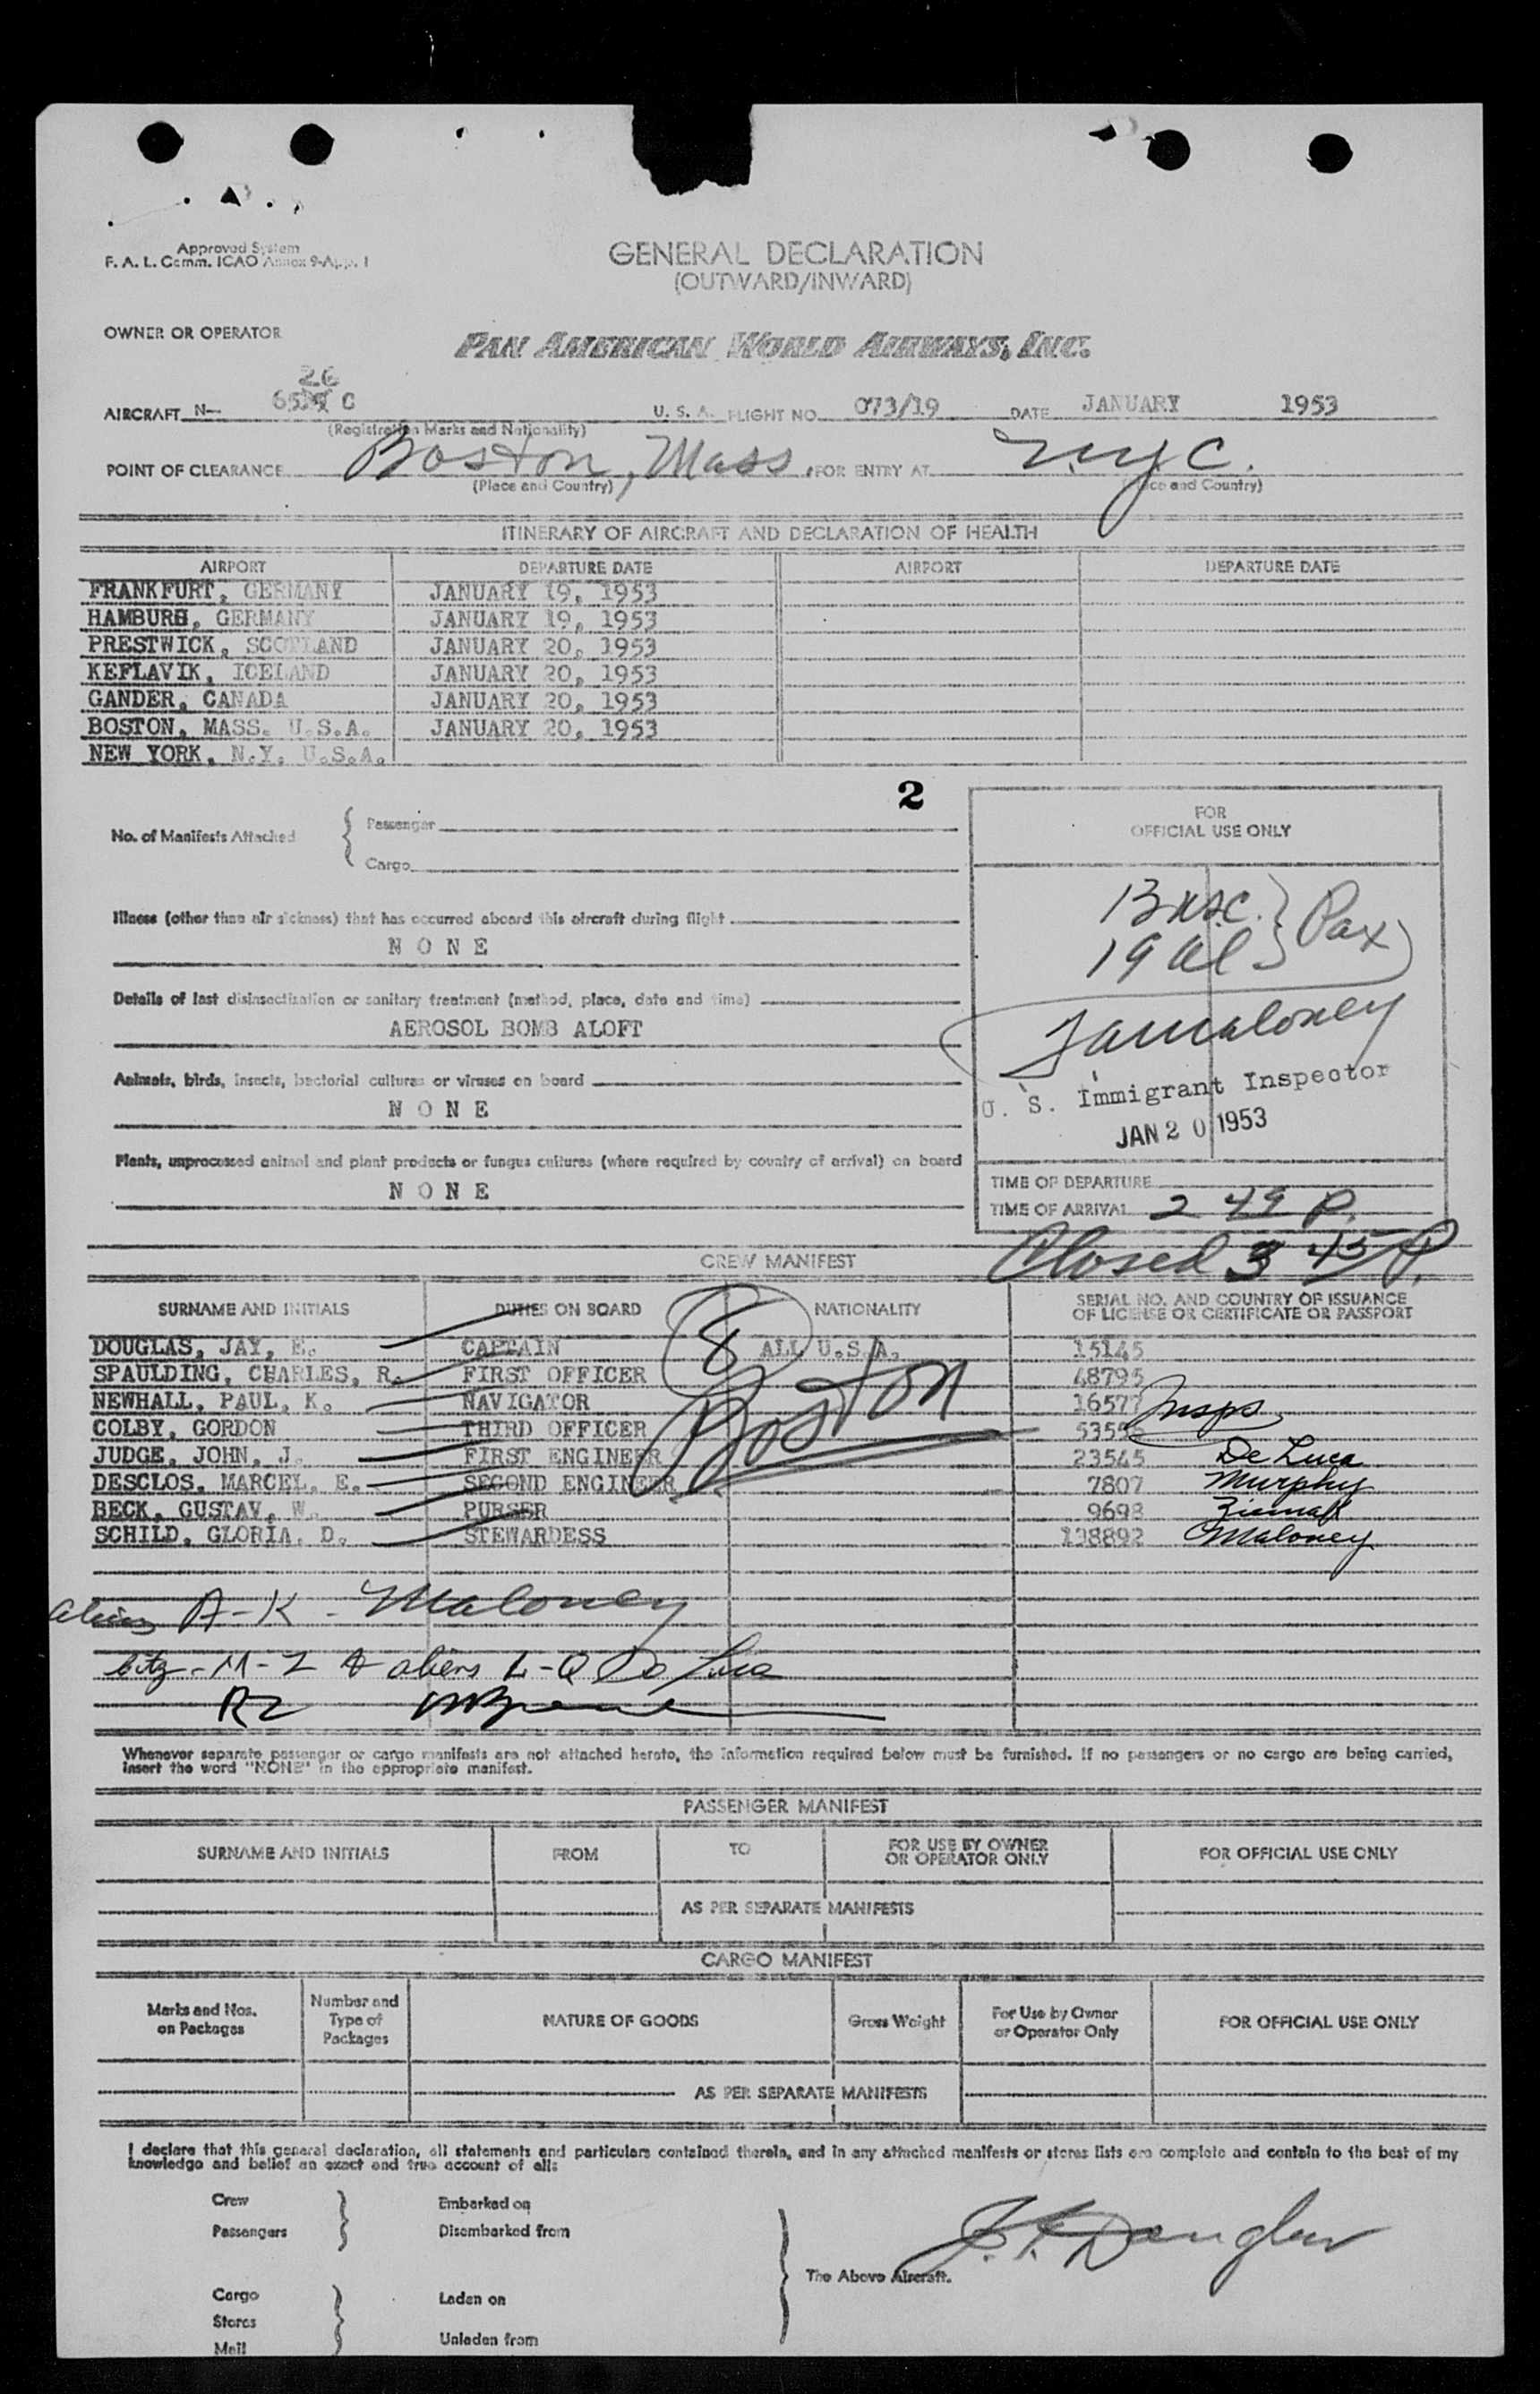 Approved System
F. A. L. Comm. ICAO Annex 9-App. 1
GENERAL DECLARATION
(OUTWARD/INWARD)
OWNER OR OPERATOR
PAN AMERICAN WORLD AIRWAYS, INC.
26
AIRCRAFT N- C U. S. A. FLIGHT NO. 073/19 DATE JANUARY 1953
(Registration Marks and Nationality)
POINT OF CLEARANCE Boston, Mass. FOR ENTRY AT NYC.
(Place and Country) (Place and Country)
ITINERARY OF AIRCRAFT AND DECLARATION OF HEALTH
AIRPORT DEPARTURE DATE AIRPORT DEPARTURE DATE
FRANKFURT, GERMANY JANUARY 19, 1953
HAMBURG, GERMANY JANUARY 19, 1953
PRESTWICK, SCOTLAND JANUARY 20, 1953
KEFLAVIK, ICELAND JANUARY 20, 1953
GANDER, CANADA JANUARY 20, 1953
BOSTON, MASS. U.S.A. JANUARY 20, 1953
NEW YORK, N.Y. U.S.A.
2
No. of Manifests Attached { Passenger
Cargo
FOR
OFFICIAL USE ONLY
13 usc. } Pax
19 al
Illness (other than air sickness) that has occurred aboard this aircraft during flight
N O N E
Details of last disinsectization or sanitary treatment (method, place, date and time)
AEROSOL BOMB ALOFT
Maloney
U. S. Immigrant Inspector
JAN 20 1953
Animals, birds, insects, bacterial cultures or viruses on board
N O N E
Plants, unprocessed animal and plant products or fungus cultures (where required by country of arrival) on board
N O N E
TIME OF DEPARTURE
TIME OF ARRIVAL 2 49 P.
Closed 3 45 P.
CREW MANIFEST
SURNAME AND INITIALS DUTIES ON BOARD NATIONALITY SERIAL NO. AND COUNTRY OF ISSUANCE
OF LICENSE OR CERTIFICATE OR PASSPORT
DOUGLAS, JAY, E. CAPTAIN 8 ALL U.S.A. 15145
SPAULDING, CHARLES, R. FIRST OFFICER 48795
NEWHALL, PAUL, K. NAVIGATOR Boston 16577 Insps
COLBY, GORDON THIRD OFFICER
JUDGE, JOHN, J. FIRST ENGINEER 23545 De Luca
DESCLOS, MARCEL, E. SECOND ENGINEER 7807 Murphy
BECK, GUSTAV, W. PURSER 9698
SCHILD, GLORIA, D. STEWARDESS 138892 Maloney
aliens A-K - Maloney
Citz - M-Z & aliens L-Q De Luca
RZ
Whenever separate passenger or cargo manifests are not attached hereto, the information required below must be furnished. If no passengers or no cargo are being carried,
insert the word "NONE" in the appropriate manifest.
PASSENGER MANIFEST
SURNAME AND INITIALS FROM TO FOR USE BY OWNER
OR OPERATOR ONLY FOR OFFICIAL USE ONLY
AS PER SEPARATE MANIFESTS
CARGO MANIFEST
Marks and Nos.
on Packages Number and
Type of
Packages NATURE OF GOODS Gross Weight For Use by Owner
or Operator Only FOR OFFICIAL USE ONLY
AS PER SEPARATE MANIFESTS
I declare that this general declaration, all statements and particulars contained therein, and in any attached manifests or stores lists are complete and contain to the best of my
knowledge and belief an exact and true account of all:
Crew Embarked on
Passengers Disembarked from
J. E. Douglas
The Above Aircraft.
Cargo Laden on
Stores
Mail Unladen from